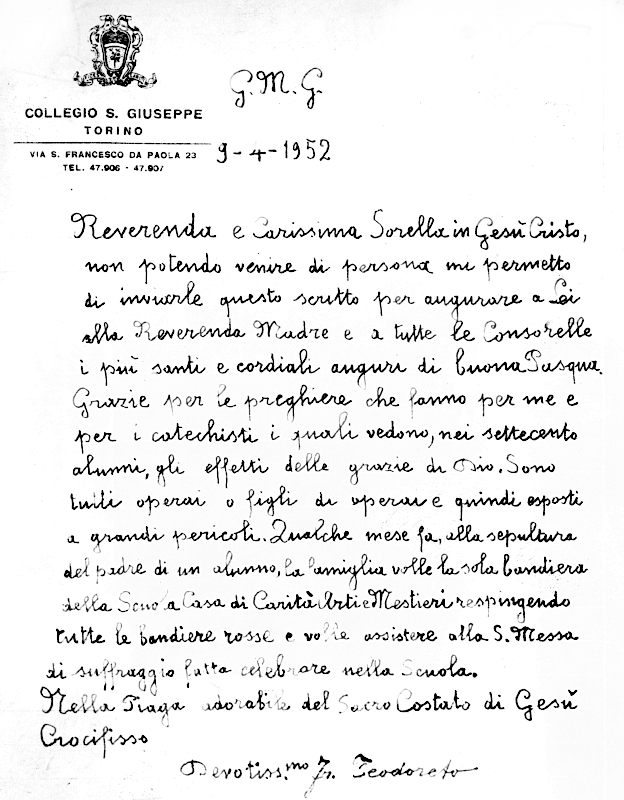 G. M. G.
COLLEGIO S. GIUSEPPE
TORINO
VIA S. FRANCESCO DA PAOLA 23
TEL. 47.906 - 47.907
9-4-1952
Reverenda e Carissima Sorella in Gesù Cristo,
non potendo venire di persona mi permetto
di inviarle questo scritto per augurare a Lei
alla Reverenda Madre e a tutte le Consorelle
i più santi e cordiali auguri di buona Pasqua.
Grazie per le preghiere che fanno per me e
per i catechisti i quali vedono, nei settecento
alunni, gli effetti delle grazie di Dio. Sono
tutti operai o figli di operai e quindi esposti
a grandi pericoli. Qualche mese fa, alla sepultura
del padre di un alunno, la famiglia volle la sola bandiera
della Scuola Casa di Carità Arti e Mestieri respingendo
tutte le bandiere rosse e volle assistere alla S. Messa
di suffraggio fatta celebrare nella Scuola.
Nella Piaga adorabile del Sacro Costato di Gesù
Crocifisso
Devotiss.mo Fr. Teodoreto